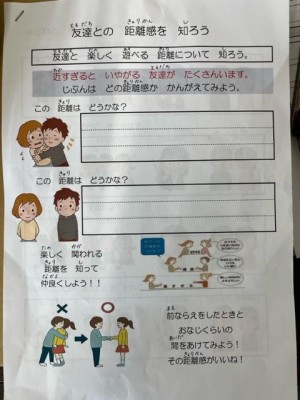 友達との 距離感を 知ろう
友達と 楽しく 遊べる 距離について 知ろう。
近すぎると いやがる 友達が たくさんいます。
じぶんは どの距離感か かんがえてみよう。
この 距離は どうかな?
この 距離は どうかな?
楽しく 関われる
距離を 知って
仲良くしよう!!
前ならえをしたときと
おなじくらいの
間をあけてみよう!
その距離感がいいね!